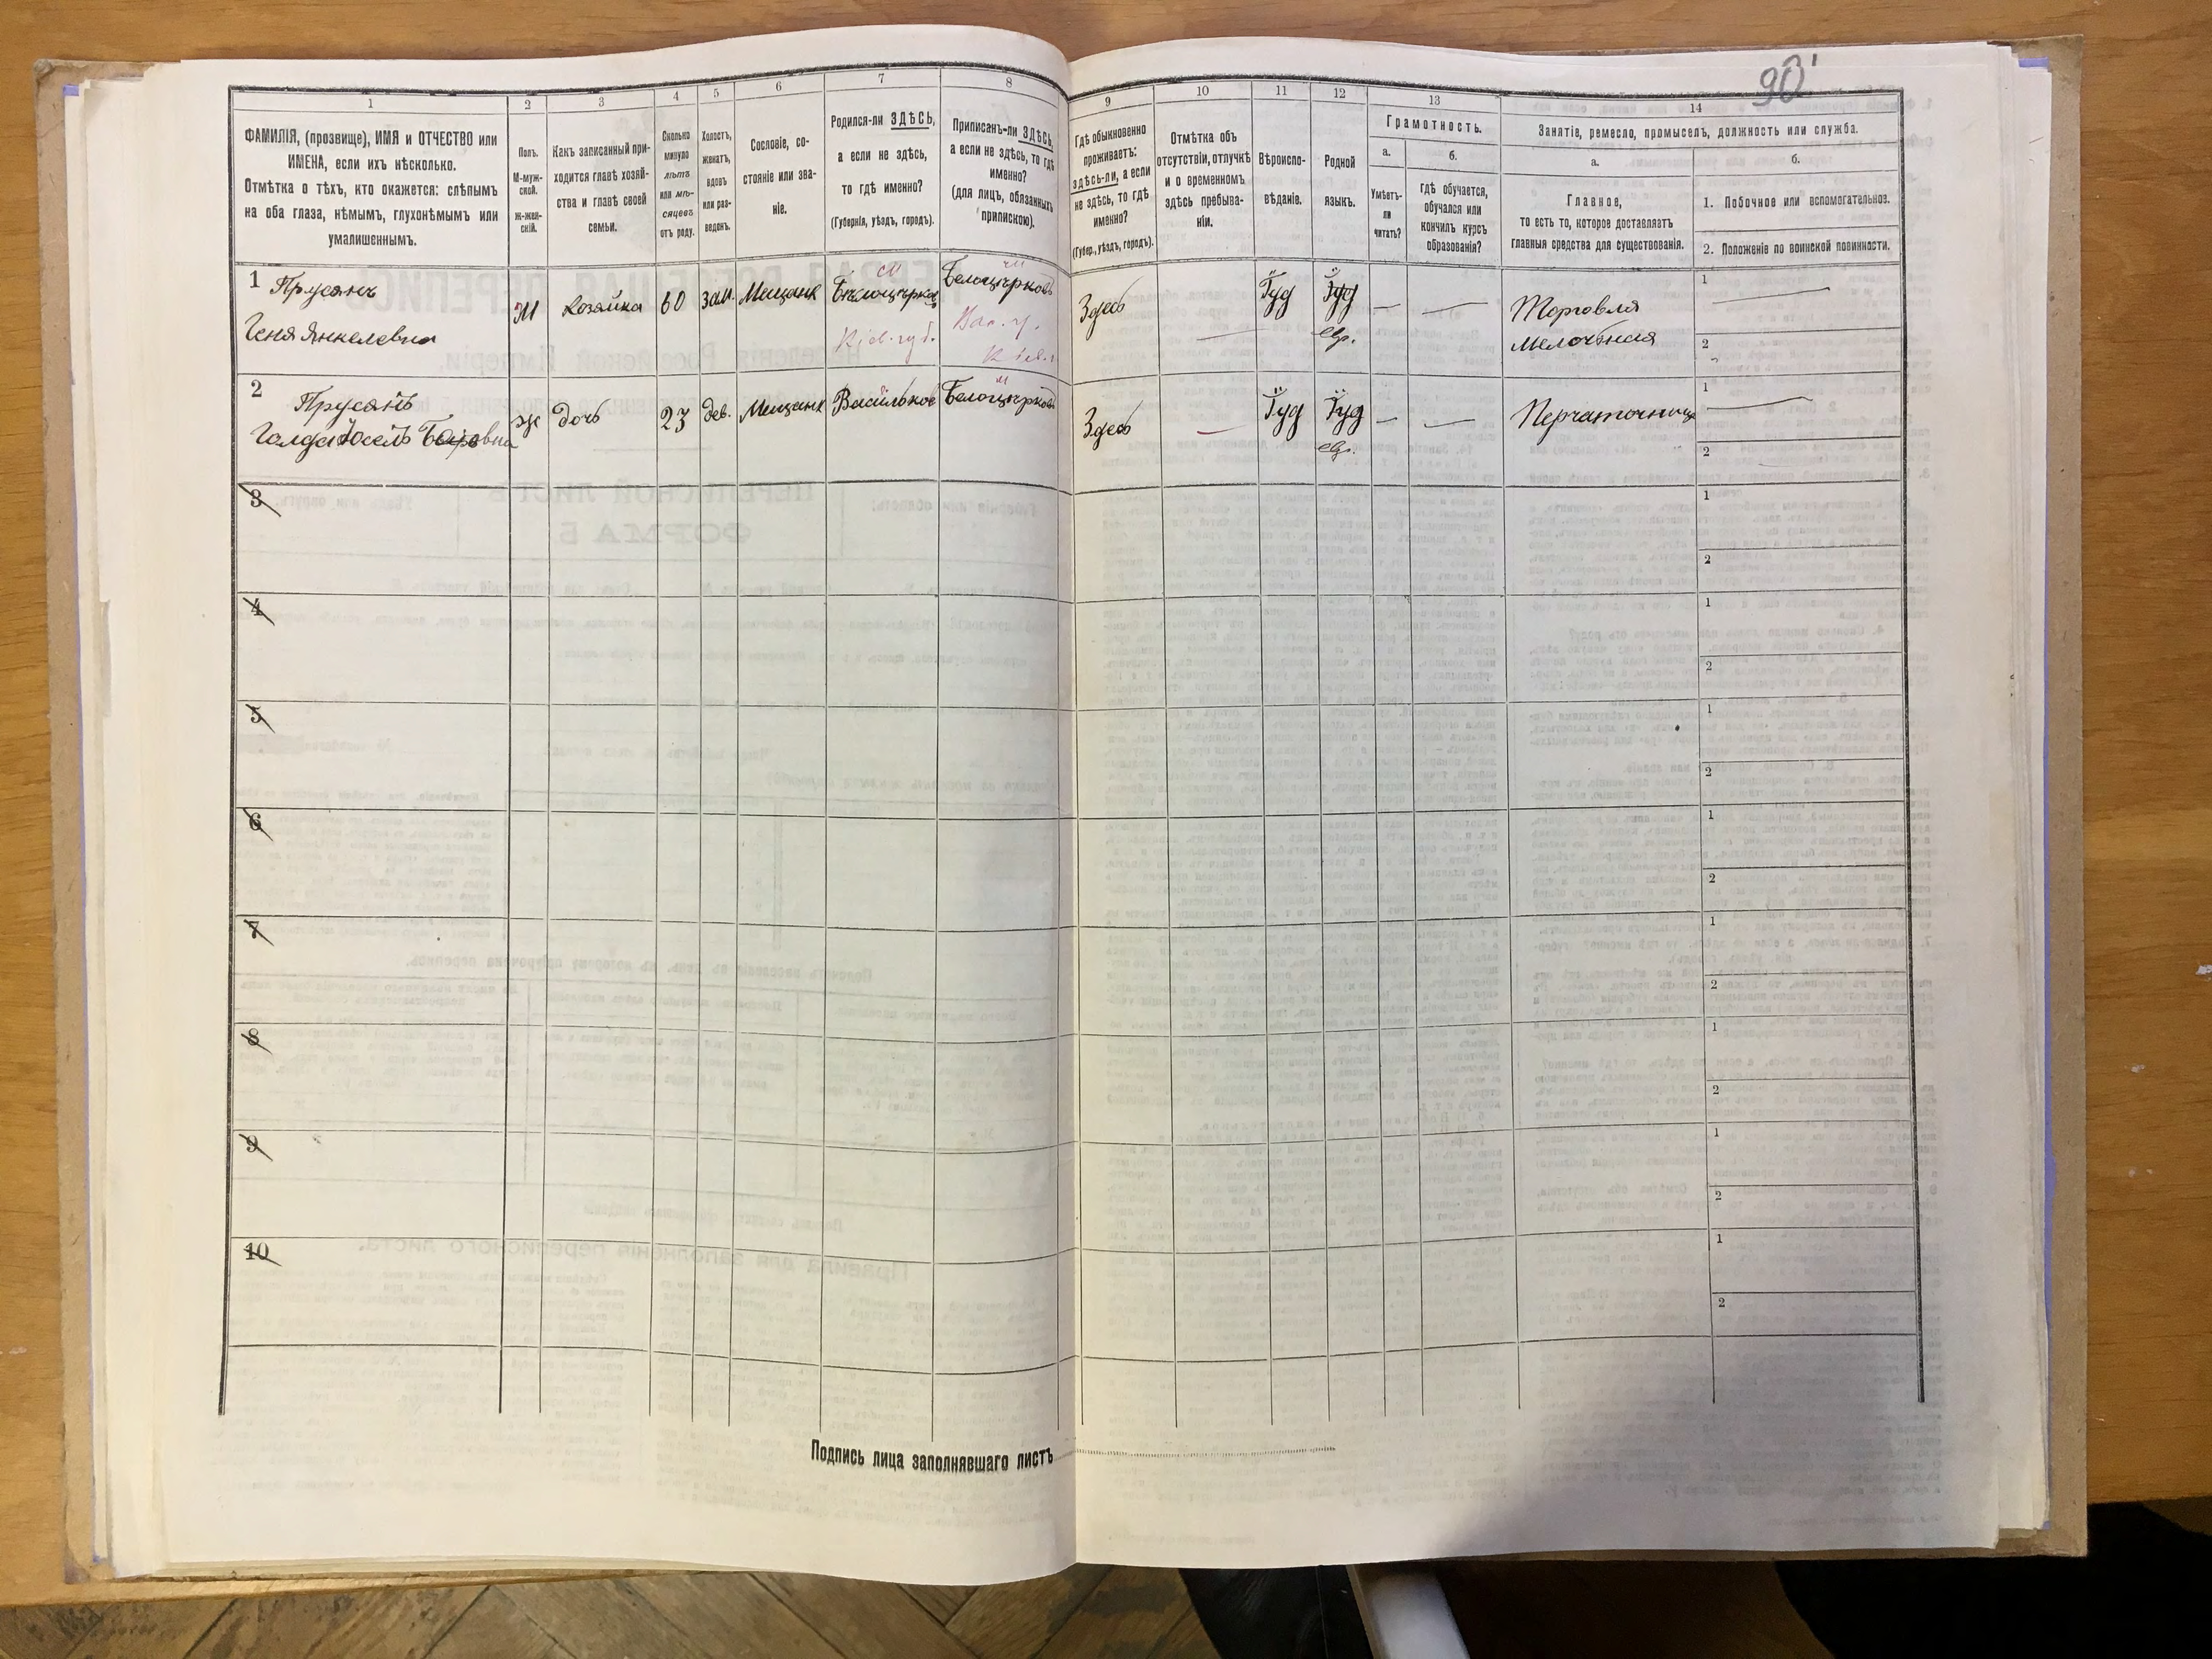 90
1
2
3
4
5
6
7
8
9
10
11
12
13
14
ФАМИЛІЯ, (прозвище), ИМЯ и ОТЧЕСТВО или
ИМЕНА, если ихъ нѣсколько.
Отмѣтка о тѣхъ, кто окажется: слѣпымъ
на оба глаза, нѣмымъ, глухонѣмымъ или
умалишеннымъ.
Полъ.
М-муж-
ской.
Ж-жен-
скій.
Какъ записанный при-
ходится главѣ хозяй-
ства и главѣ своей
семьи.
Сколько
минуло
лѣтъ
или мѣ-
сяцевъ
отъ роду.
Холостъ,
женатъ,
вдовъ
или раз-
веденъ.
Сословіе, со-
стояніе или зва-
ніе.
Родился-ли ЗДѢСЬ,
а если не здѣсь,
то гдѣ именно?
(Губернія, уѣздъ, городъ).
Приписанъ-ли ЗДѢСЬ,
а если не здѣсь, то гдѣ
именно?
(для лицъ, обязанныхъ
припискою).
Гдѣ обыкновенно
проживаетъ:
здѣсь-ли, а если
не здѣсь, то гдѣ
именно?
(Губер., уѣздъ, городъ).
Отмѣтка объ
отсутствіи, отлучкѣ
и о временномъ
здѣсь пребыва-
ніи.
Вѣроиспо-
вѣданіе.
Родной
языкъ.
Грамотность.
а.
Умѣетъ-
ли
читать?
б.
гдѣ обучается,
обучался или
кончилъ курсъ
образованія?
Занятіе, ремесло, промыселъ, должность или служба.
а.
Главное,
то есть то, которое доставляетъ
главныя средства для существованія.
б.
1. Побочное или вспомогательное.
2. Положеніе по воинской повинности.
1 Прусянъ
Геня Янкелевна
Ж
хозяйка
60
зам.
Мещанк
Бѣлоцерков
Кіев. губ.
Белоцерков
Вас. у.
Кіев. г
Здесь
—
Іуд
Іуд
евр.
—
—
Торговля
мелочная
1 —
2
2
Прусянъ
Голда
ж
дочь
23
дев.
Мещанк
Васильков
Белоцерков
Здесь
—
Іуд
Іуд
евр.
—
—
Перчаточница
1 —
2
3
1
2
4
1
2
5
1
2
6
1
2
7
1
2
8
1
2
9
1
2
10
1
2
Подпись лица заполнявшаго листъ